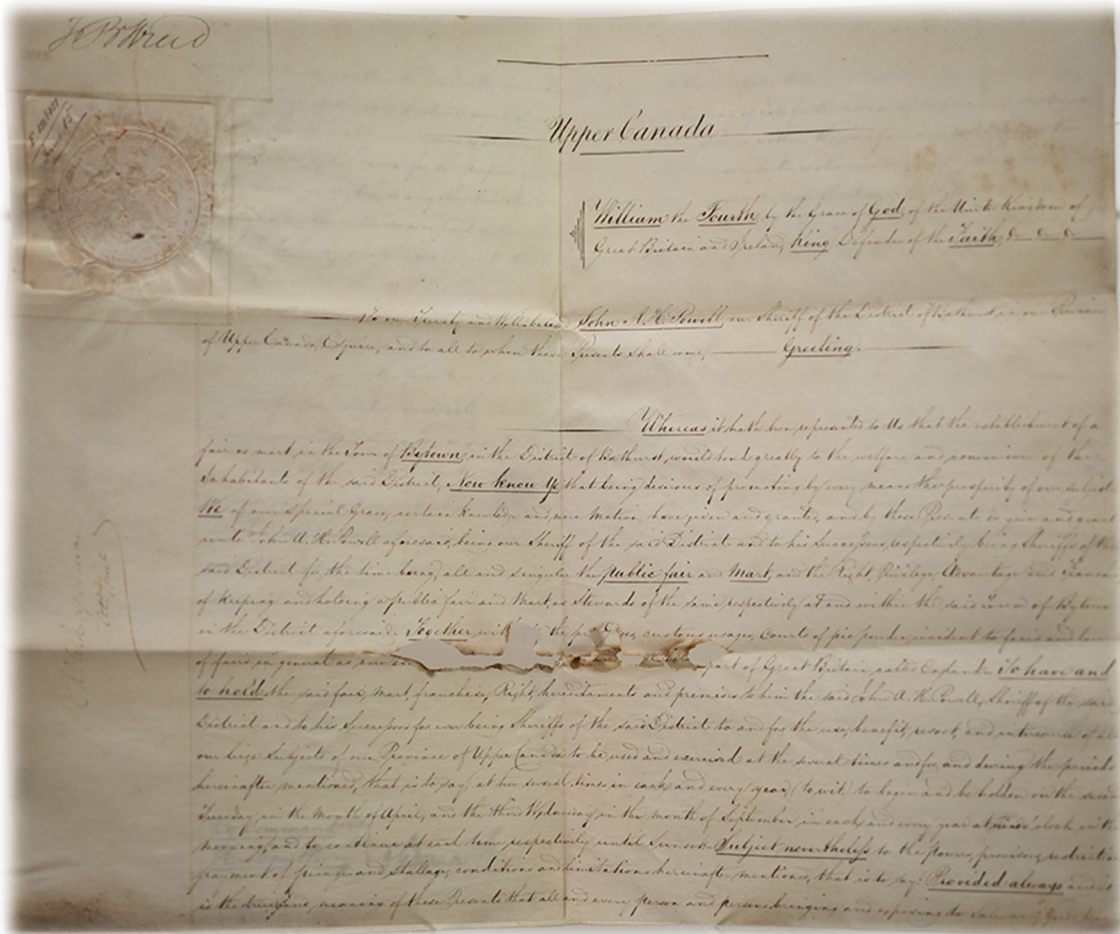 Upper Canada
William the Fourth, by the Grace of God, of the United Kingdom of
Great Britain and Ireland, King, Defender of the Faith, &c &c &c
To our Trusty and Wellbeloved John A. H. Powell, our Sheriff of the District of Bathurst, in our Province
of Upper Canada, Esquire, and to all to whom these Presents shall come, Greeting.
Whereas it hath been represented to Us that the establishment of a
fair or mart, in the Town of Bytown, in the District of Bathurst, would tend greatly to the welfare and convenience of the
Inhabitants of the said District, Now know Ye, that being desirous of promoting by every means the prosperity of our subjects
We of our Special Grace, certain Knowledge and mere Motion, have given and granted, and by these Presents do give and grant
unto John A. H. Powell aforesaid, being our Sheriff of the said District and to his Successors, respectively being Sheriffs of the
said District for the time being, all and singular the public fair and Mart, and the Right, Privilege, Advantage and
of Keeping and holding a public fair and Mart, as Stewards of the same respectively at and within the said Town of Bytown
in the District aforesaid. Together with the customs, usages, Courts of pie poudre, incident to fairs and
of fairs in general as part of Great Britain, called England. To have and
to hold the said fair, Mart, franchise, Right, hereditaments and premises to him the said John A. H. Powell, Sheriff of the said
District and to his Successors for ever being Sheriffs of the said District to and for the use, benefit, resort, and intercourse of all
our liege Subjects of our Province of Upper Canada to be used and exercised at the several times and for and during the periods
hereinafter mentioned, that is to say, at two several times in each and every year, (to wit) to begin and be holden on the
Tuesday, in the Month of April, and the third Wednesday in the month of September, in each and every year at o'clock in the
morning, and to continue at each time, respectively until Sunset. Subject nevertheless to the
payment of and Stallage, conditions and limitations hereinafter mentioned, that is to say: Provided always and it
is the true meaning of these Presents that all and every person and persons bringing and exposing to Sale any